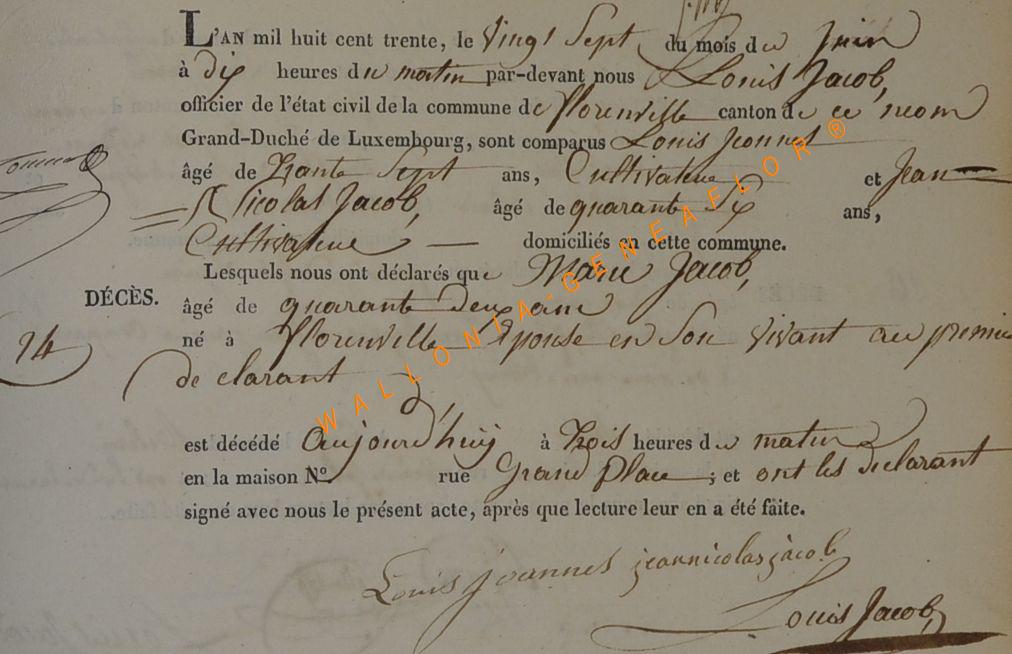 L'AN mil huit cent trente, le Vingt Sept du mois de Juin
à dix heures du matin par-devant nous Louis Jacob,
officier de l'état civil de la commune de florenville canton de ce nom
Grand-Duché de Luxembourg, sont comparus Louis Jeannet
âgé de trante Sept ans, Cultivateur et Jean
Nicolas Jacob, âgé de quarante Six ans,
Cultivateur domiciliés en cette commune.
Lesquels nous ont déclarés que Marie Jacob,
DÉCÈS. âgé de quarante deux ans
24 né à florenville Epouse en Son Vivant au premier
de clarant
est décédé Aujourd'huy à trois heures du matin
en la maison N° rue Grand Place ; et ont les declarant
signé avec nous le présent acte, après que lecture leur en a été faite.
Louis joannes jeannicolas jacob
Louis Jacob,
WALLONIA-GENEAFLOR®